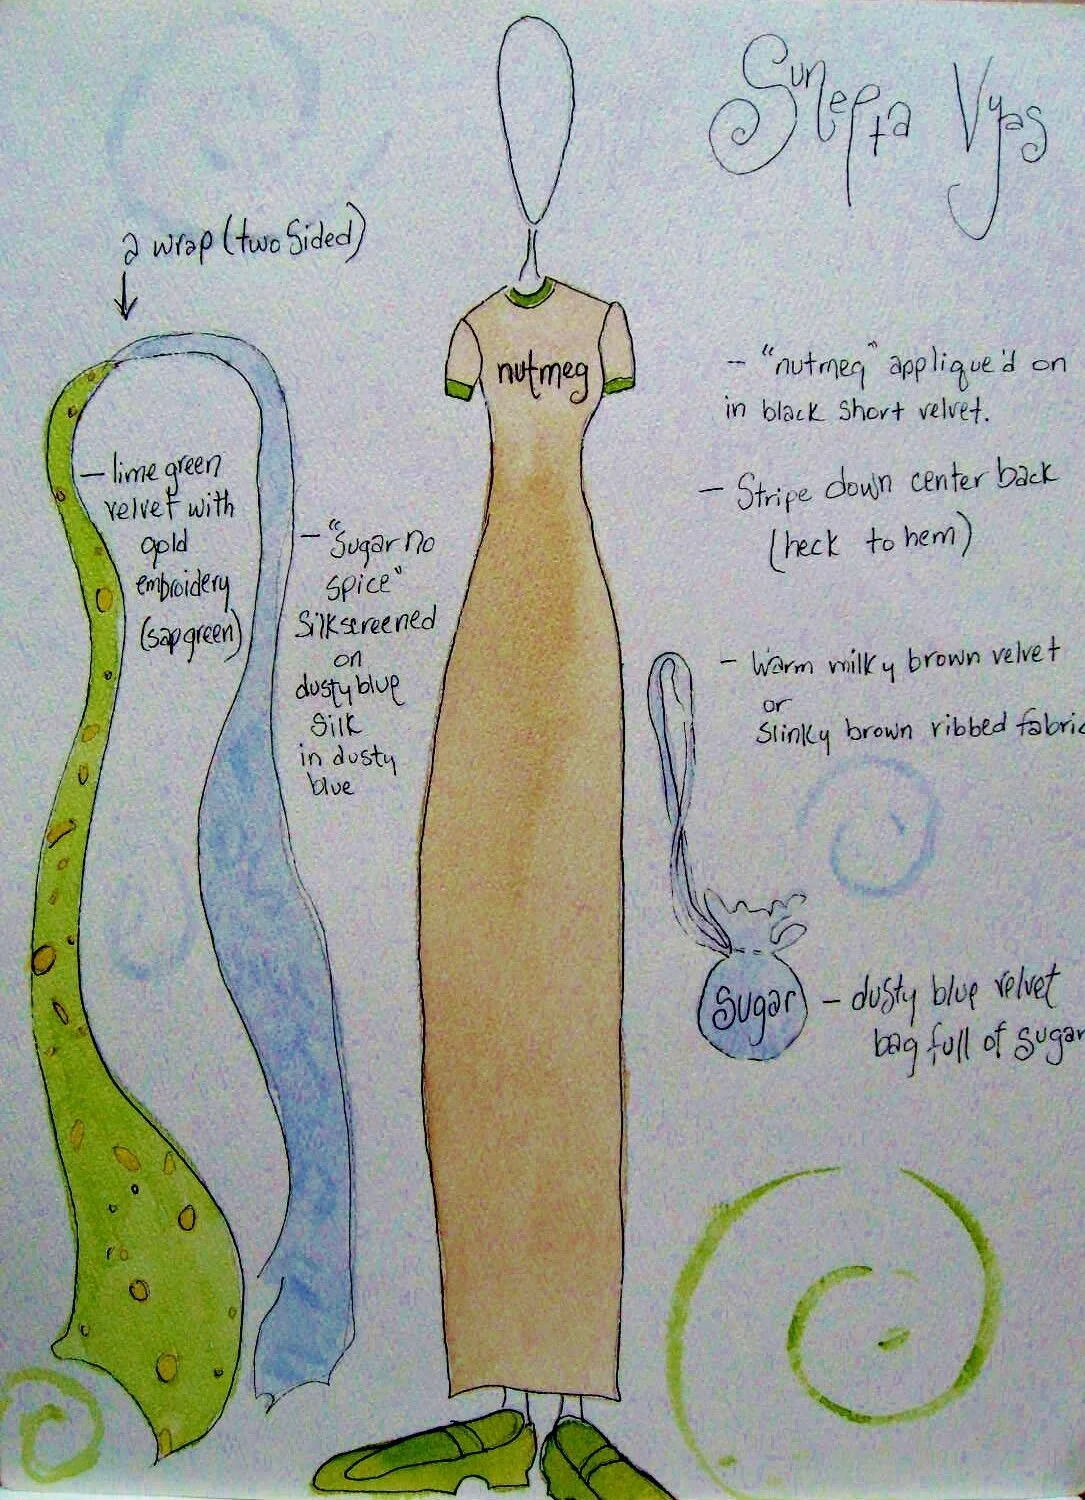 Vyas
a wrap (two sided)
nutmeg
– "nutmeg" applique'd on
in black short velvet.
– Stripe down center back
(neck to hem)
– lime green
velvet with
gold
embroidery
(sap green)
– "Sugar no
spice"
Silkscreened
on
dusty blue
Silk
in dusty
blue
– Warm milky brown velvet
or
slinky brown ribbed fabric
Sugar
– dusty blue velvet
bag full of sugar